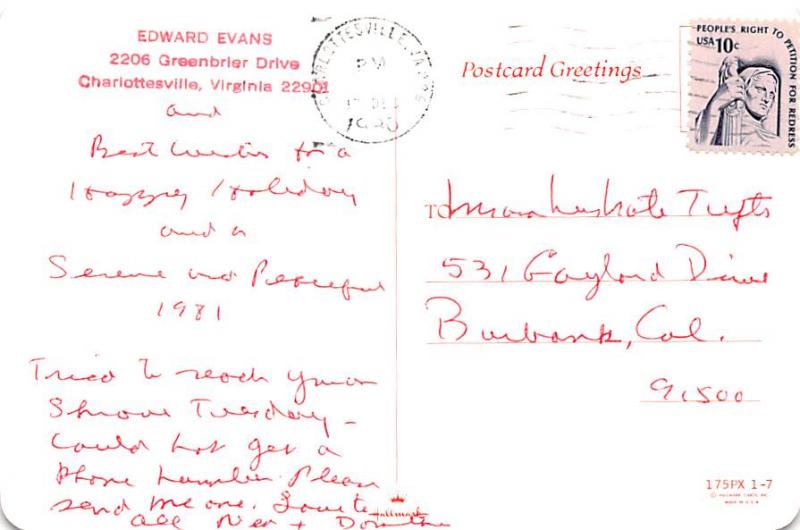 EDWARD EVANS
2206 Greenbrier Drive
Charlottesville, Virginia 22901
and
Best Wishes for a
Happy Holiday
and a
Serene and Peaceful
1981
Tried to reach you on
Shrove Tuesday -
Could not get a
Phone number. Please
send me one. Love to
all Nea +
CHARLOTTESVILLE, VA
PM
17 DEC
1980
Postcard Greetings
PEOPLE'S RIGHT TO PETITION FOR REDRESS
USA 10c
TO Tufts
531 Gaylord Drive
Burbank, Cal.
91500
Hallmark
175PX 1-7
© HALLMARK CARDS, INC.
MADE IN U.S.A.